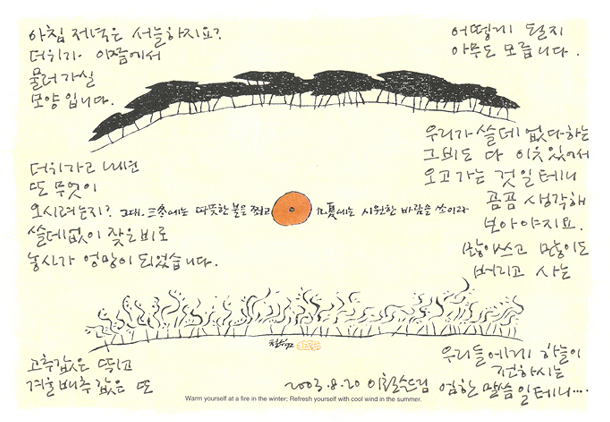 아침 저녁은 서늘하지요?
더위가 이쯤에서
물러가실
모양입니다.
더위가고 나면
또 무엇이
오시려는지?
쓸데없이 잦은 비로
농사가 엉망이 되었습니다.
고추값은 뛰고
겨울 배추값은 또
어떻게 될지
아무도 모릅니다.
우리가 쓸데없다 하는
그 비도 다 이유 있어서
오고 가는 것일테니
곰곰 생각해
보아야지요.
많이 쓰고 많이도
버리고 사는
우리들에게 하늘이
전하시는
엄한 말씀일테니···
그대. 三冬에는 따뜻한 불을 쬐고
九夏에는 시원한 바람을 쏘이라
2003.8.20 이철수드림
Warm yourself at a fire in the winter; Refresh yourself with cool wind in the summer.